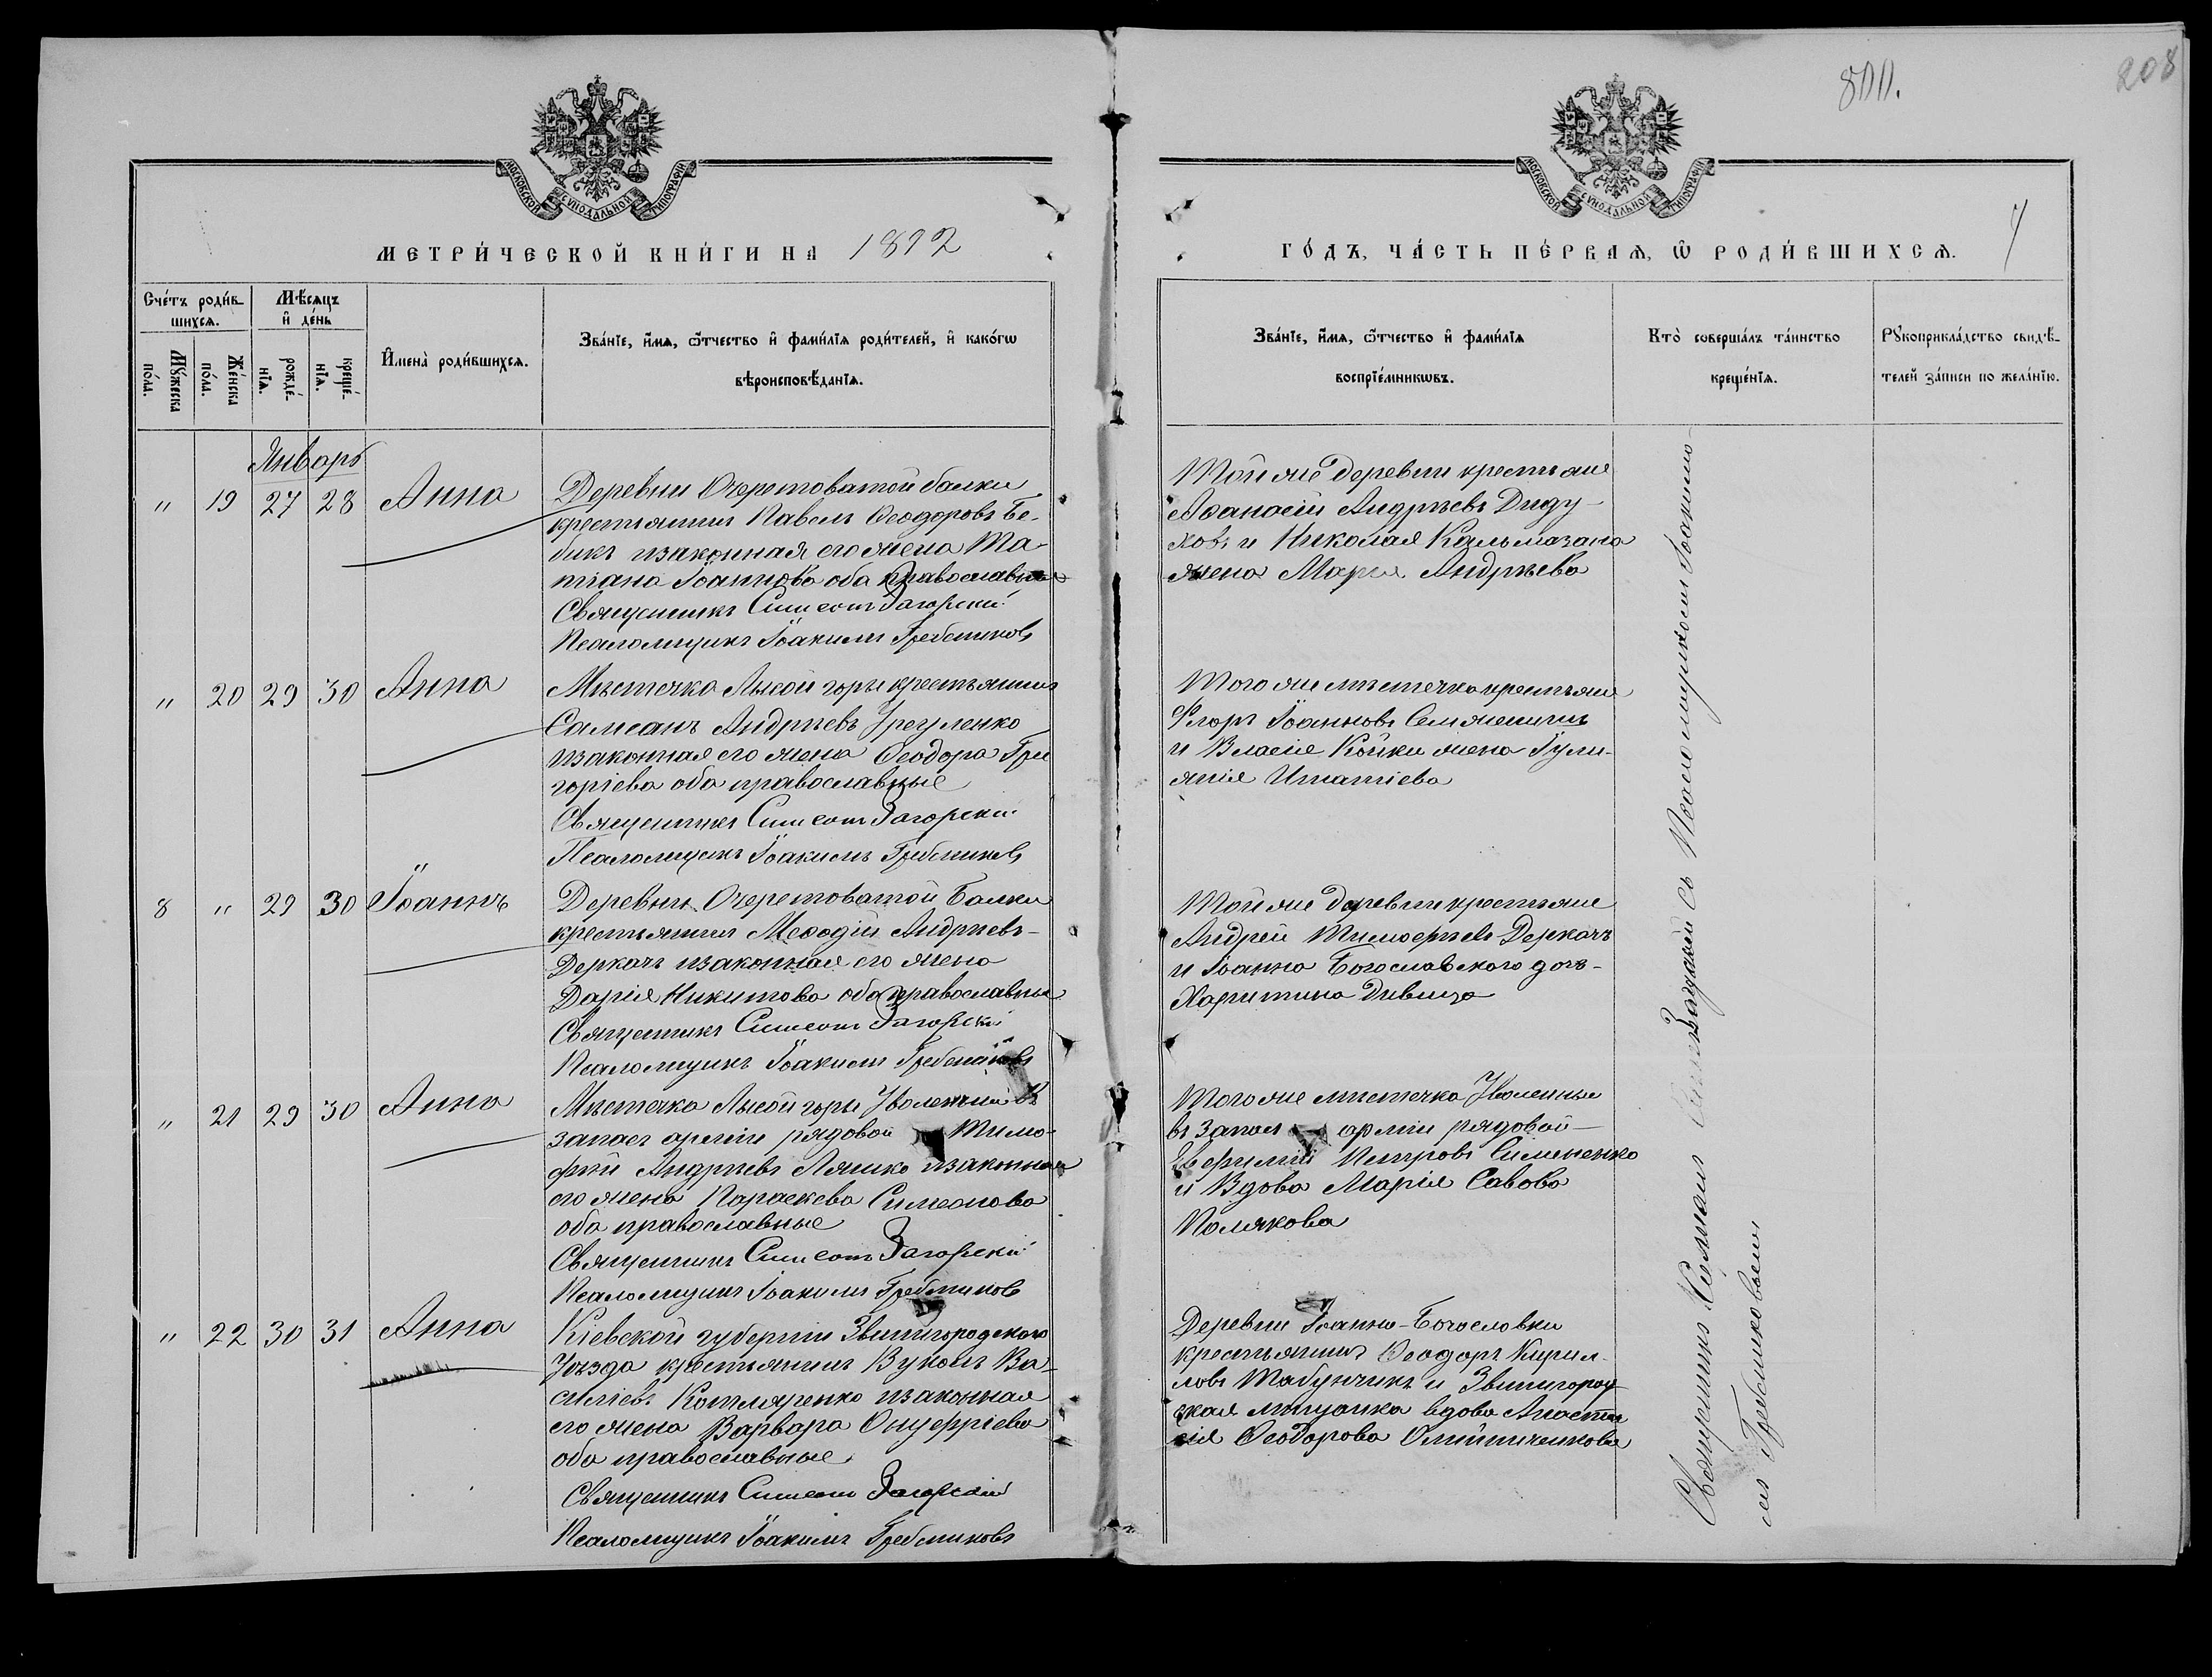 800.
208
МОСКОВСКОЙ СѴНОДАЛЬНОЙ ТИПОГРАФІИ
МОСКОВСКОЙ СѴНОДАЛЬНОЙ ТИПОГРАФІИ
МЕТРИ́ЧЕСКОЙ КНИ́ГИ НА 1892
ГО́ДЪ, ЧА́СТЬ ПЕ́РВАѦ, Ѡ҆ РОДИ́ВШИХСѦ.
7
Сче́тъ роди́в-
шихсѧ.
Мѣ́сѧцъ
и҆ де́нь
Мꙋ́жеска
по́ла.
Же́нска
по́ла.
рожде́-
нїѧ.
креще́-
нїѧ.
И҆мена̀ роди́вшихсѧ.
Зва́нїе, и҆́мѧ, ѻ҆́тчество и҆ фами́лїѧ роди́телей, и҆ како́гѡ
вѣроисповѣ́данїѧ.
Зва́нїе, и҆́мѧ, ѻ҆́тчество и҆ фами́лїѧ
воспрїе́мникѡвъ.
Кто̀ соверша́лъ та́инство
креще́нїѧ.
Рꙋкоприкла́дство свидѣ́-
телей за́писи по жела́нїю.
Январь
" 19 27 28 Анна
Деревни Очеретоватой балки
крестьянинъ Павелъ Ѳеодоровъ Бе-
бикъ изаконная его жена Та
тіана Іоаннова оба православные
Священникъ Симеонъ Загорскій
Псаломщикъ Іоакимъ Гребениковъ
Той же деревни крестьяне
Аѳанасій Андреевъ Диду-
ховъ и Николая Кальмазана
жена Марія Андреева
" 20 29 30 Анна
Мѣстечка Лысой горы крестьянинъ
Самсонъ Андреевъ Урсуленко
изаконная его жена Ѳеодора Гри
горіева оба православные
Священникъ Симеонъ Загорскій
Псаломщикъ Іоакимъ Гребениковъ
Того же мѣстечка крестьяне
Флоръ Іоанновъ
и Власія Койки жена Іули-
анія Игнатіева
8 " 29 30 Іоаннъ
Деревни Очеретоватой Балки
крестьянинъ Меѳодій Андреевъ-
Деркачъ изаконная его жена
Дарія Никитова оба православные
Священникъ Симеонъ Загорскій
Псаломщикъ Іоакимъ Гребениковъ
Той же деревни крестьяне
Андрей Тимоѳеевъ Деркачъ
и Іоанна Богославского дочь-
Харитина Дивица
" 21 29 30 Анна
Мѣстечка Лысой горы Уволенный въ
запасъ арміи рядовой Тимо-
фей Андреевъ Ляшко изаконная
его жена Параскева Симеонова
оба православные
Священникъ Симеонъ Загорскій
Псаломщикъ Іоакимъ Гребениковъ
Того же мѣстечка Уволенные
въ запасъ арміи рядовой-
Евфимій Петровъ Симоненко
и Вдова Марія Савова
Полякова
" 22 30 31 Анна
Кіевской губерніи Звенигородского
Уѣзда крестьянинъ Вуколъ Ва-
силіевъ Котляренко изаконная
его жена Варвара Онуфріева
оба православные
Священникъ Симеонъ Загорскій
Псаломщикъ Іоакимъ Гребениковъ
Деревни Іоанно-Богословки
крестьянинъ Ѳеодоръ Кирил-
ловъ Табунчикъ и Звенигород
ская мѣщанка вдова Анаста
сія Ѳеодорова
Священникъ Загорскій съ Псаломщикомъ Іоакимо-
мъ Гребениковымъ